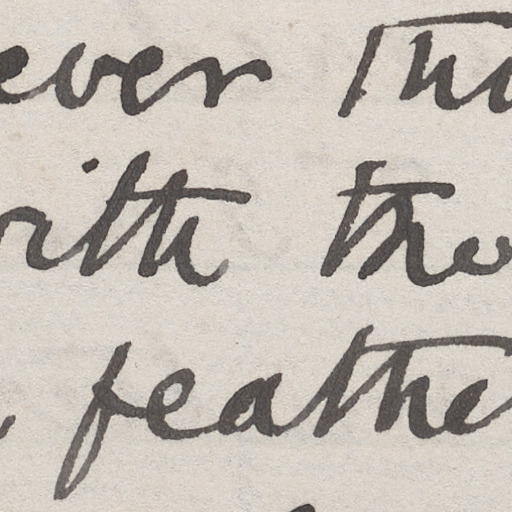 ever tho
with the
feathe